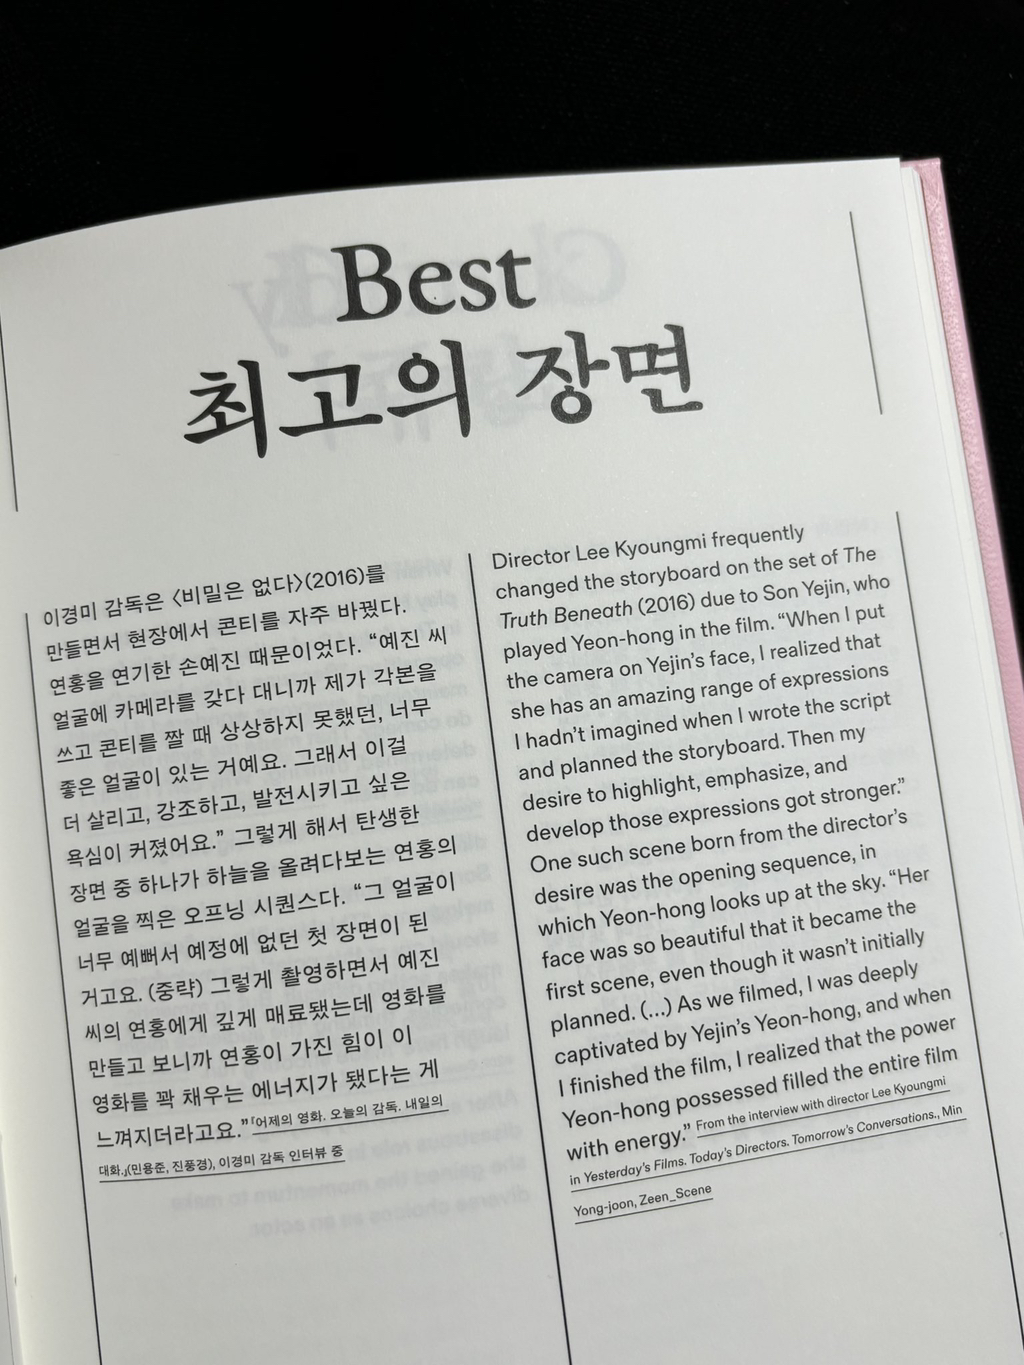 Best
최고의 장면
이경미 감독은 〈비밀은 없다〉(2016)를
만들면서 현장에서 콘티를 자주 바꿨다.
연홍을 연기한 손예진 때문이었다. “예진 씨
얼굴에 카메라를 갖다 대니까 제가 각본을
쓰고 콘티를 짤 때 상상하지 못했던, 너무
좋은 얼굴이 있는 거예요. 그래서 이걸
더 살리고, 강조하고, 발전시키고 싶은
욕심이 커졌어요.” 그렇게 해서 탄생한
장면 중 하나가 하늘을 올려다보는 연홍의
얼굴을 찍은 오프닝 시퀀스다. “그 얼굴이
너무 예뻐서 예정에 없던 첫 장면이 된
거고요. (중략) 그렇게 촬영하면서 예진
씨의 연홍에게 깊게 매료됐는데 영화를
만들고 보니까 연홍이 가진 힘이 이
영화를 꽉 채우는 에너지가 됐다는 게
느껴지더라고요.” 『어제의 영화. 오늘의 감독. 내일의
대화.』(민용준, 진풍경), 이경미 감독 인터뷰 중
Director Lee Kyoungmi frequently
changed the storyboard on the set of The
Truth Beneath (2016) due to Son Yejin, who
played Yeon-hong in the film. “When I put
the camera on Yejin’s face, I realized that
she has an amazing range of expressions
I hadn’t imagined when I wrote the script
and planned the storyboard. Then my
desire to highlight, emphasize, and
develop those expressions got stronger.”
One such scene born from the director’s
desire was the opening sequence, in
which Yeon-hong looks up at the sky. “Her
face was so beautiful that it became the
first scene, even though it wasn’t initially
planned. (...) As we filmed, I was deeply
captivated by Yejin’s Yeon-hong, and when
I finished the film, I realized that the power
Yeon-hong possessed filled the entire film
with energy.” From the interview with director Lee Kyoungmi
in Yesterday’s Films. Today’s Directors. Tomorrow’s Conversations., Min
Yong-joon, Zeen_Scene